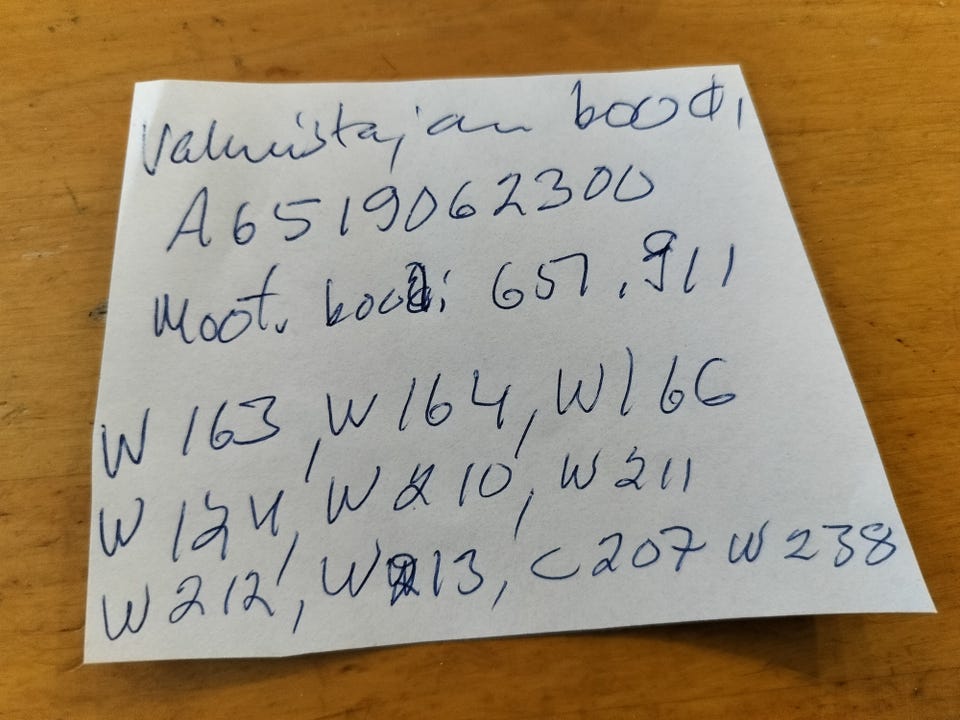 Valmistajan koodi
A6519062300
Moot. koodi: 651.911
W 163, W 164, W166
W 124, W 210, W 211
W 212, W213, C207 W 238